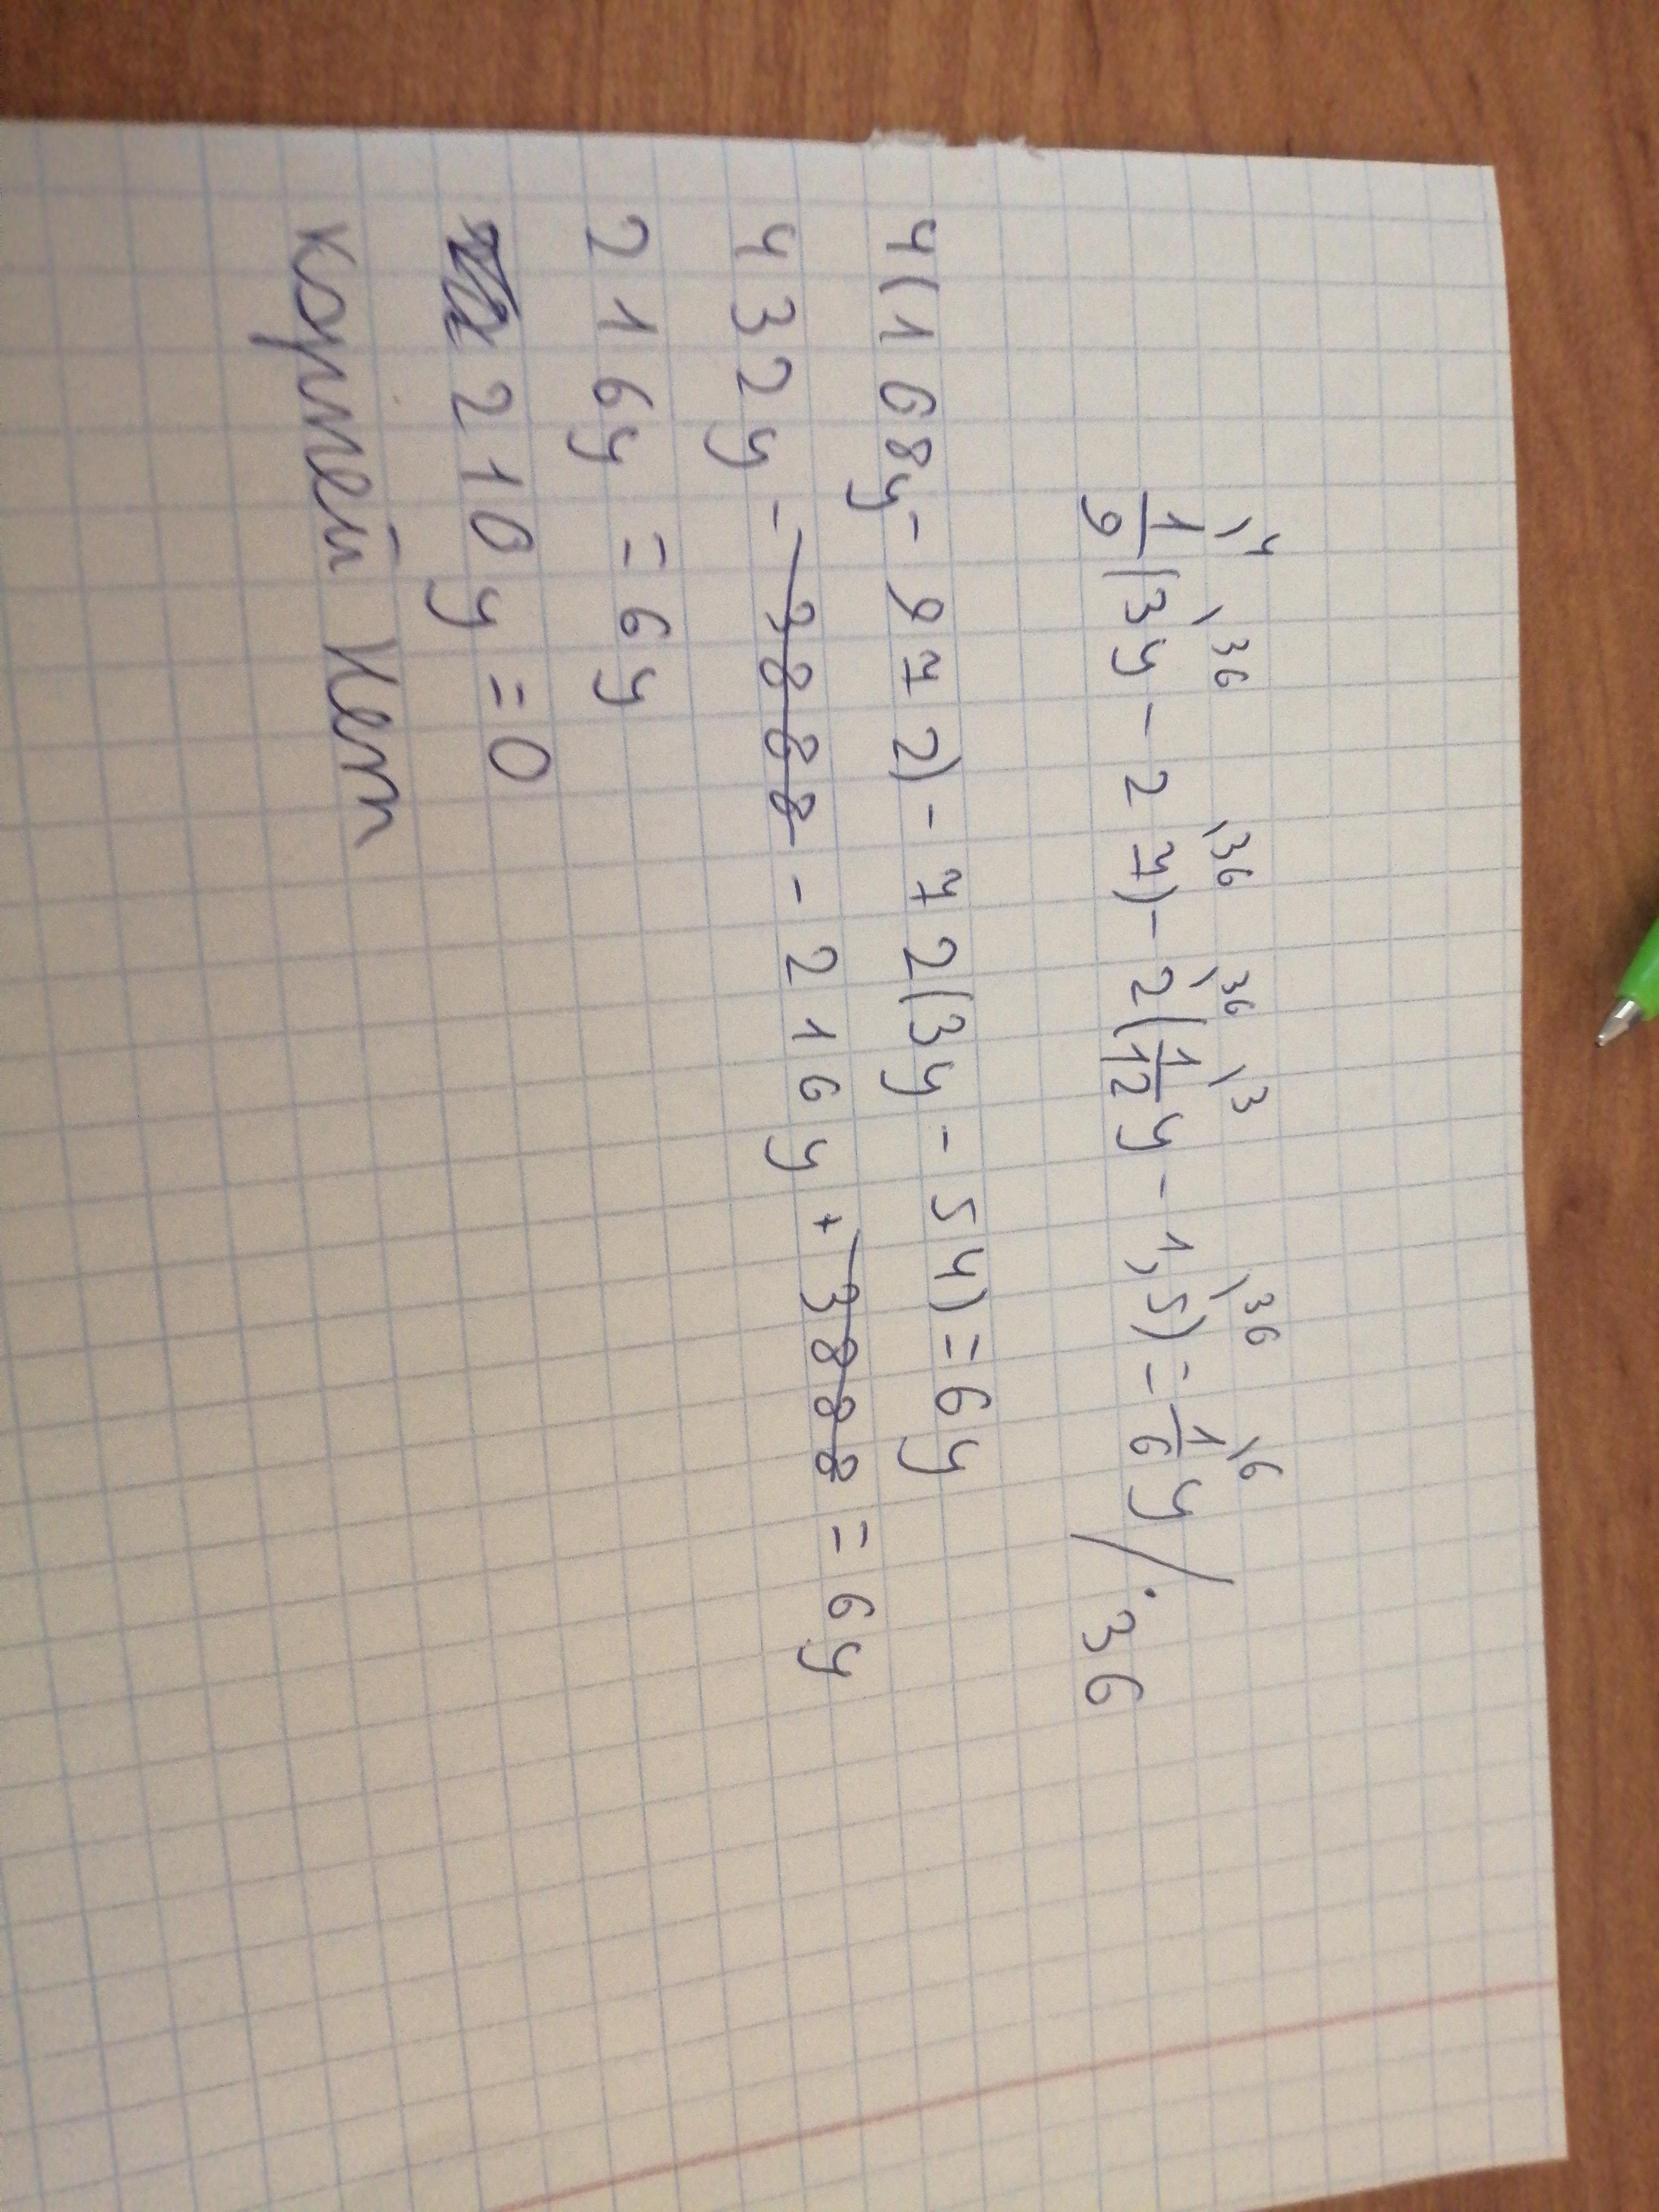 1/9 (3y - 27) - 2(1/12 y - 1,5) = 1/6 y / · 36
4(168y - 972) - 72(3y - 54) = 6y
432y - 3888 - 216y + 3888 = 6y
216y = 6y
210y = 0
корней нет